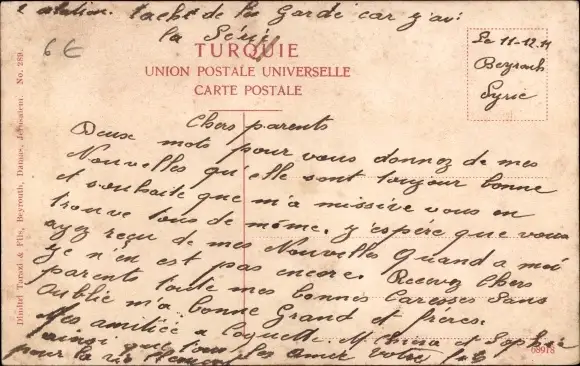 collation. tache de les Garde car j'ai
la Série
6€
TURQUIE
UNION POSTALE UNIVERSELLE
CARTE POSTALE
Le 11-12.11
Beyrouh
Syrie
Dimitri Tarazi & Fils, Beyrouth, Damas, Jérusalem. No. 289
Chers parents
Deux mots pour vous donnez de mes
Nouvelles qu'elle sont toujour bonne
et souhaite que m'a missive vous en
trouve tous de même. j'espére que vous
ayez reçu de mes Nouvelles Quand a moi
je n'en est pas encore. Recevez Chers
parents toute mes bonnes Caresses Sans
Oublié m'a bonne Grand et fréres.
Mes amitiée a Coquette, et Sophie
ainsi que tous les amis Votre fils
pour la vie
68918